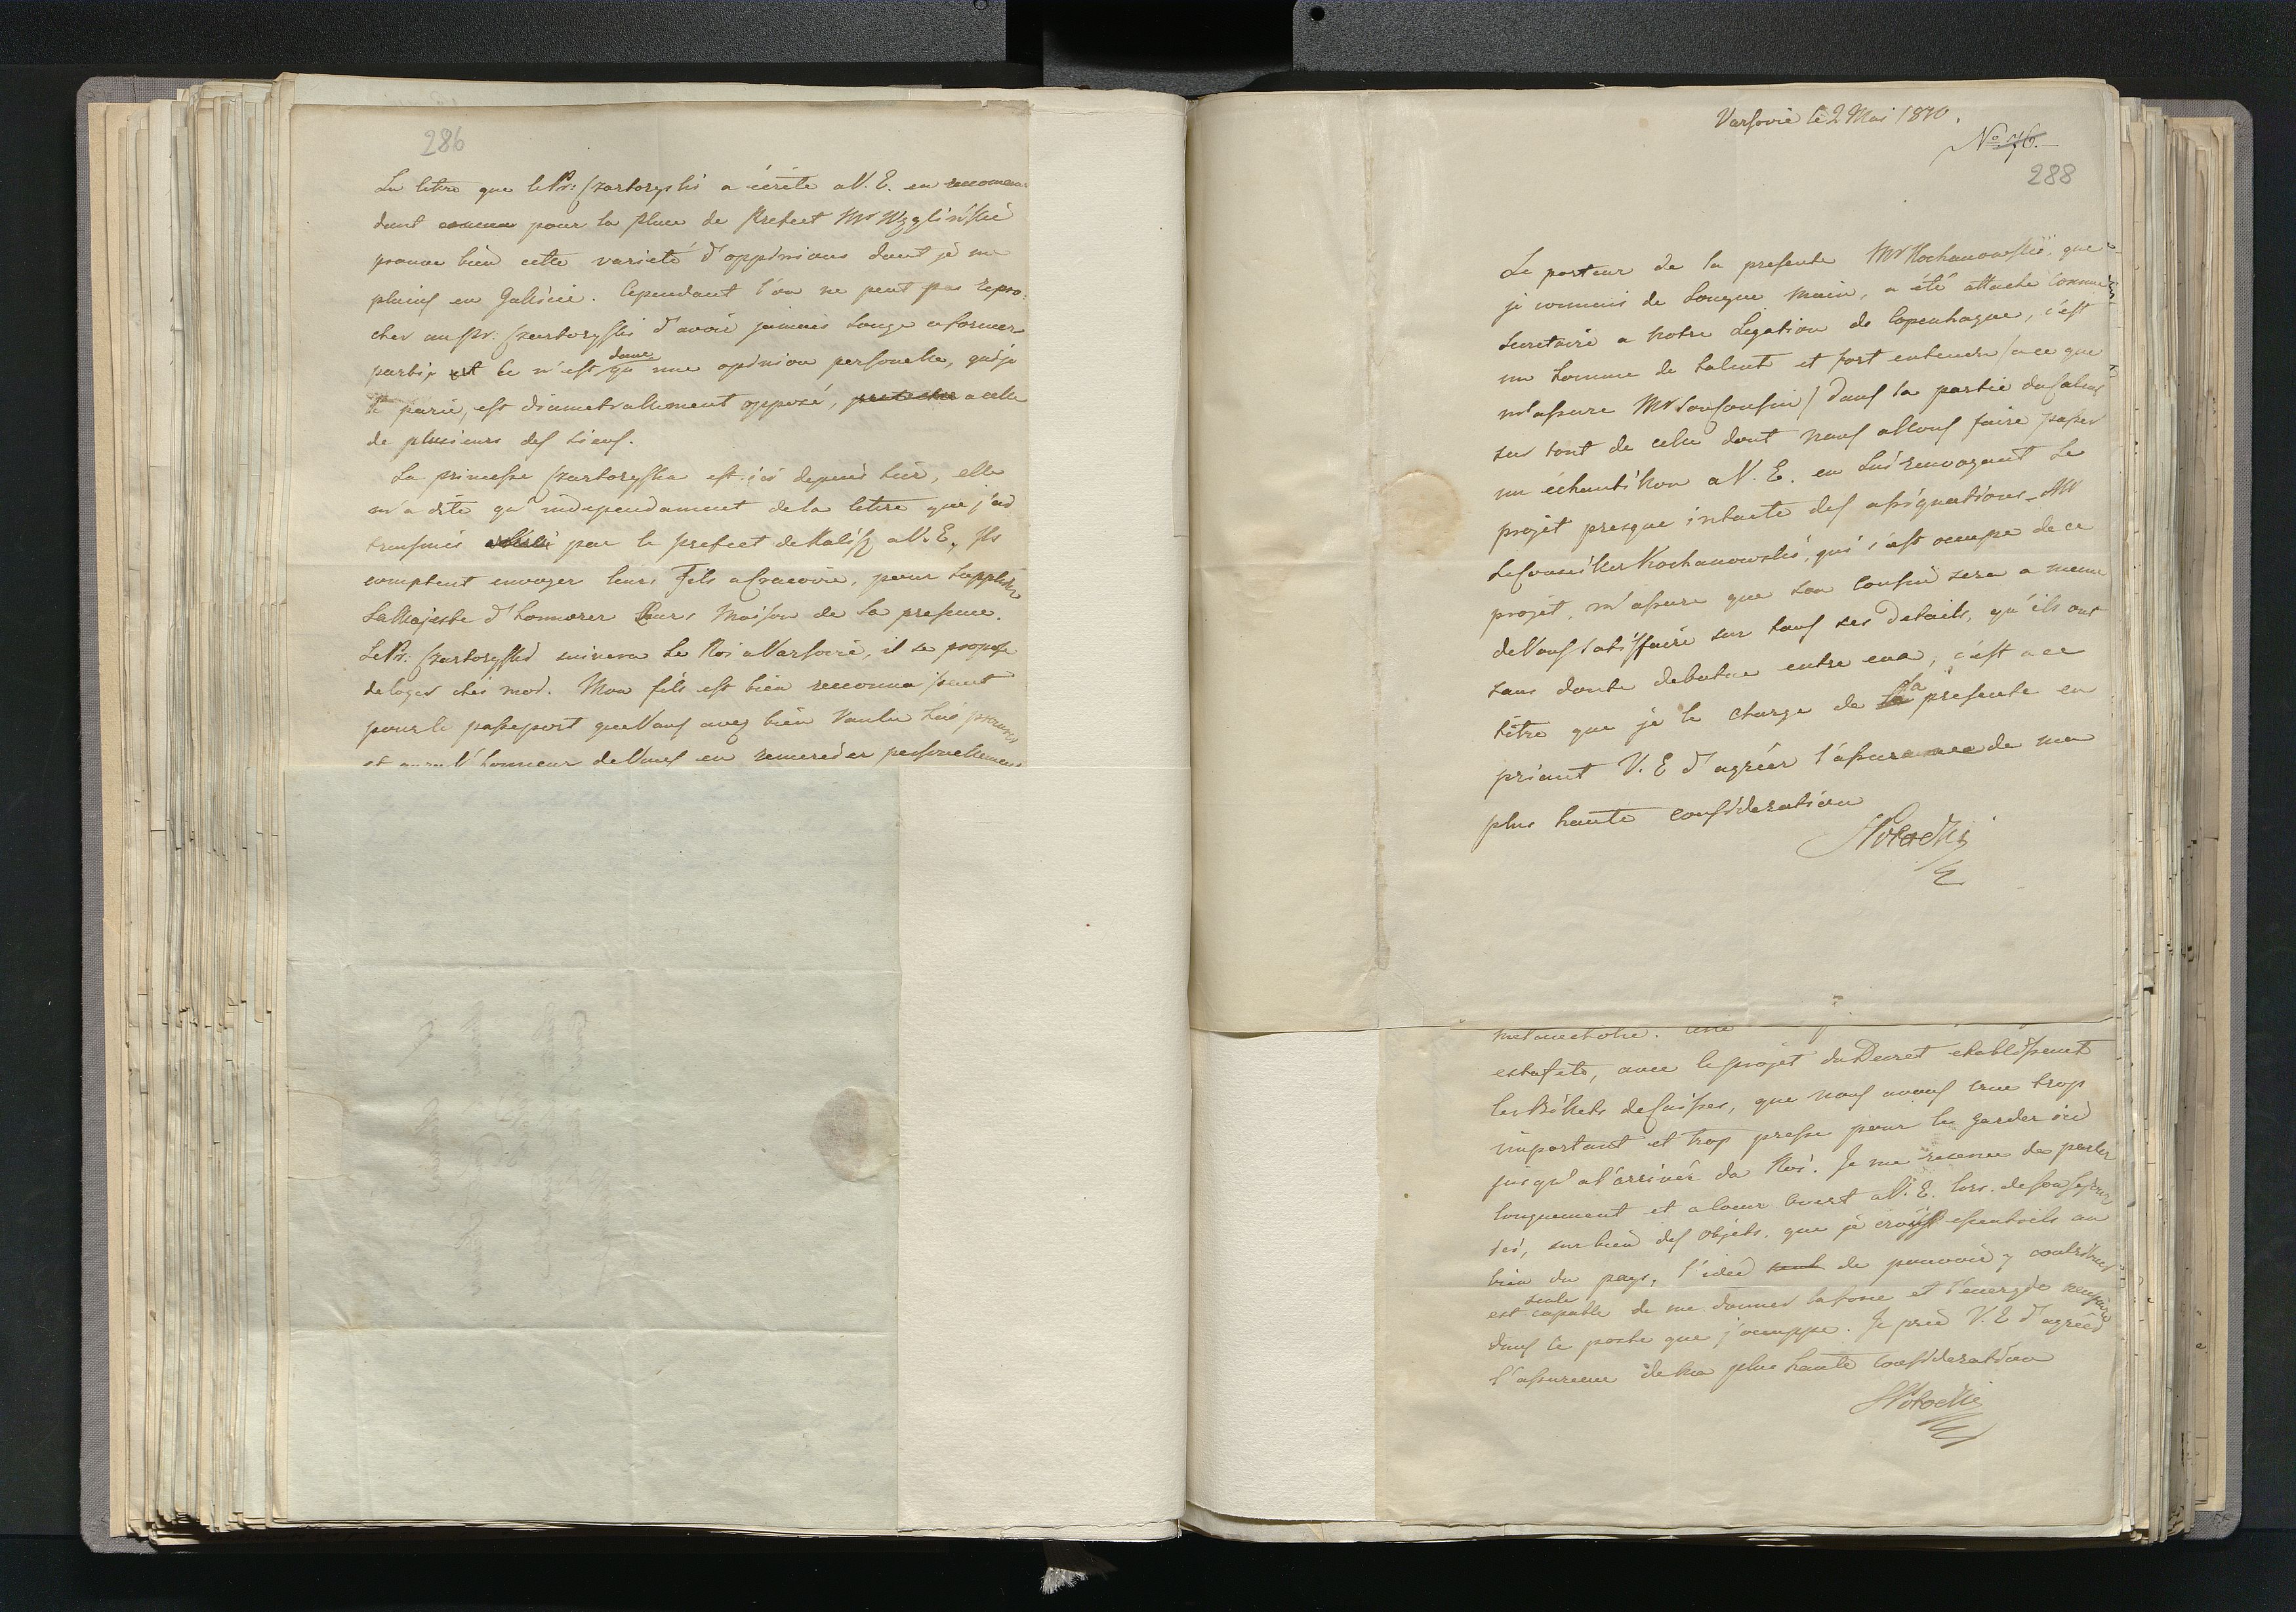 286
La lettre que le Pr: Czartoryski a écrite a V. E. en recomen-
dant pour la place de Prefect Mr Węgliński
prouve bien cette varieté d'oppinions dont je me
plains en Galicie. Cependant l'on ne peut pas repro:
cher au Pr. Czartoryski d'avoir jamais songe a former
partis, et ce n'est donc qu'une opinion personelle, qui je
parie, est diametralement opposé, a celle
de plusieurs des siens.
La princesse Czartoryska est ici depuis hier, elle
m'a dite qu'independament de la lettre que j'ai
transmis par le prefect de Kalisz a V. E., ils
comptent envoyer leurs Fils a Cracovie, pour supplier
Sa Majeste d'honnorer leurs Maison de Sa presence.
Le Pr: Czartoryski suivera le Roi a Varsovie, il se propose
de loger chés moi. Mon fils est bien reconnaissant
pour le passeport que Vous avez bien Voulu lui procurer
et aura l'honneur de Vous en remercier personellement
Varsovie le 2 Mai 1810.
No 76.
288
Le porteur de la presente Mr Kochanowski, que
je connais de Longue main, a été attaché comme
Secretaire a notre Legation de Copenhague, c'est
un homme de talent et fort entendu (a ce que
m'assure Mr ) dans la partie des salines
sur tout de celle dont nous allons faire passer
un échantillon a V. E. en Lui renvoyant Le
projet presque intacte des assignations. Mr
Le Conseiller Kochanowski, qui s'est occupe de ce
projet, m'assure que son Cousin sera a meme
de Vous satisfaire sur tous ses Details, qu'ils ont
sans doute debatue entre eux, c'est a ce
titre que je le charge de la presente en
priant V. E d'agréer l'assurance de ma
plus haute consideration
SPotocki
estafete, avec le projet du Decret etablissant
les Billets de Caisses, que nous avons crue trop
important et trop presse pour le garder ici
jusqu'a l'arrivée du Roi. Je me reserve de parler
longuement et a coeur ouvert a V. E. lors de son sejour
ici, sur bien des objets, que je crois essentiels au
bien du pays, l'idée seul de pouvoir y contribuer
seule
est capable de me donner la force et l'energie necessaire
dans le poste que j'occuppe. Je prie V. E d'agréer
l'assurance de ma plus haute consideration
SPotocki